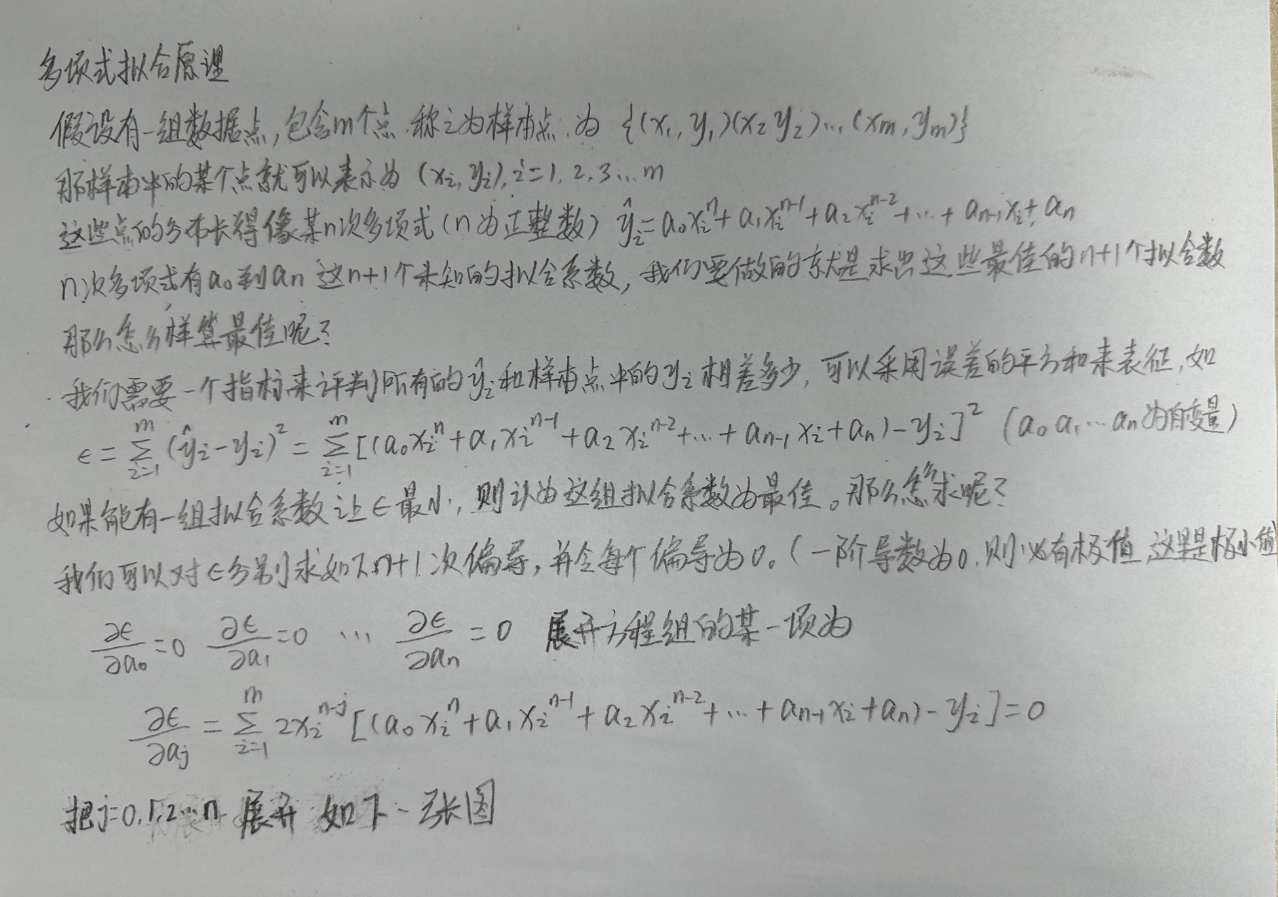 多项式拟合原理
假设有一组数据点,包含m个点.称之为样本点.为 {(x₁,y₁)(x₂ y₂)...(xm,ym)}
那样本中的某个点就可以表示为 (xi,yi),i=1,2,3...m
这些点的分布长得像某n次多项式(n为正整数) ŷi=a₀xiⁿ+a₁xiⁿ⁻¹+a₂xiⁿ⁻²+...+an-1xi+an
n次多项式有a₀到an 这n+1个未知的拟合系数,我们要做的就是求出这些最佳的n+1个拟合数
那么怎么样算最佳呢?
我们需要一个指标来评判所有的ŷi和样本点中的yi相差多少,可以采用误差的平方和来表征,如
ϵ=∑_{i=1}^{m}(ŷi-yi)²=∑_{i=1}^{m}[(a₀xiⁿ+a₁xiⁿ⁻¹+a₂xiⁿ⁻²+...+an-1xi+an)-yi]² (a₀a₁...an为自变量)
如果能有一组拟合系数让ϵ最小,则认为这组拟合系数为最佳。那么怎么求呢?
我们可以对ϵ分别求如下n+1次偏导,并令每个偏导为0。(一阶导数为0.则必有极值 这里是极小值
∂ϵ/∂a₀=0 ∂ϵ/∂a₁=0 ... ∂ϵ/∂an=0 展开方程组的某一项为
∂ϵ/∂aj=∑_{i=1}^{m}2xiⁿ⁻ʲ[(a₀xiⁿ+a₁xiⁿ⁻¹+a₂xiⁿ⁻²+...+an-1xi+an)-yi]=0
把j=0,1,2...n 展开 如下一张图